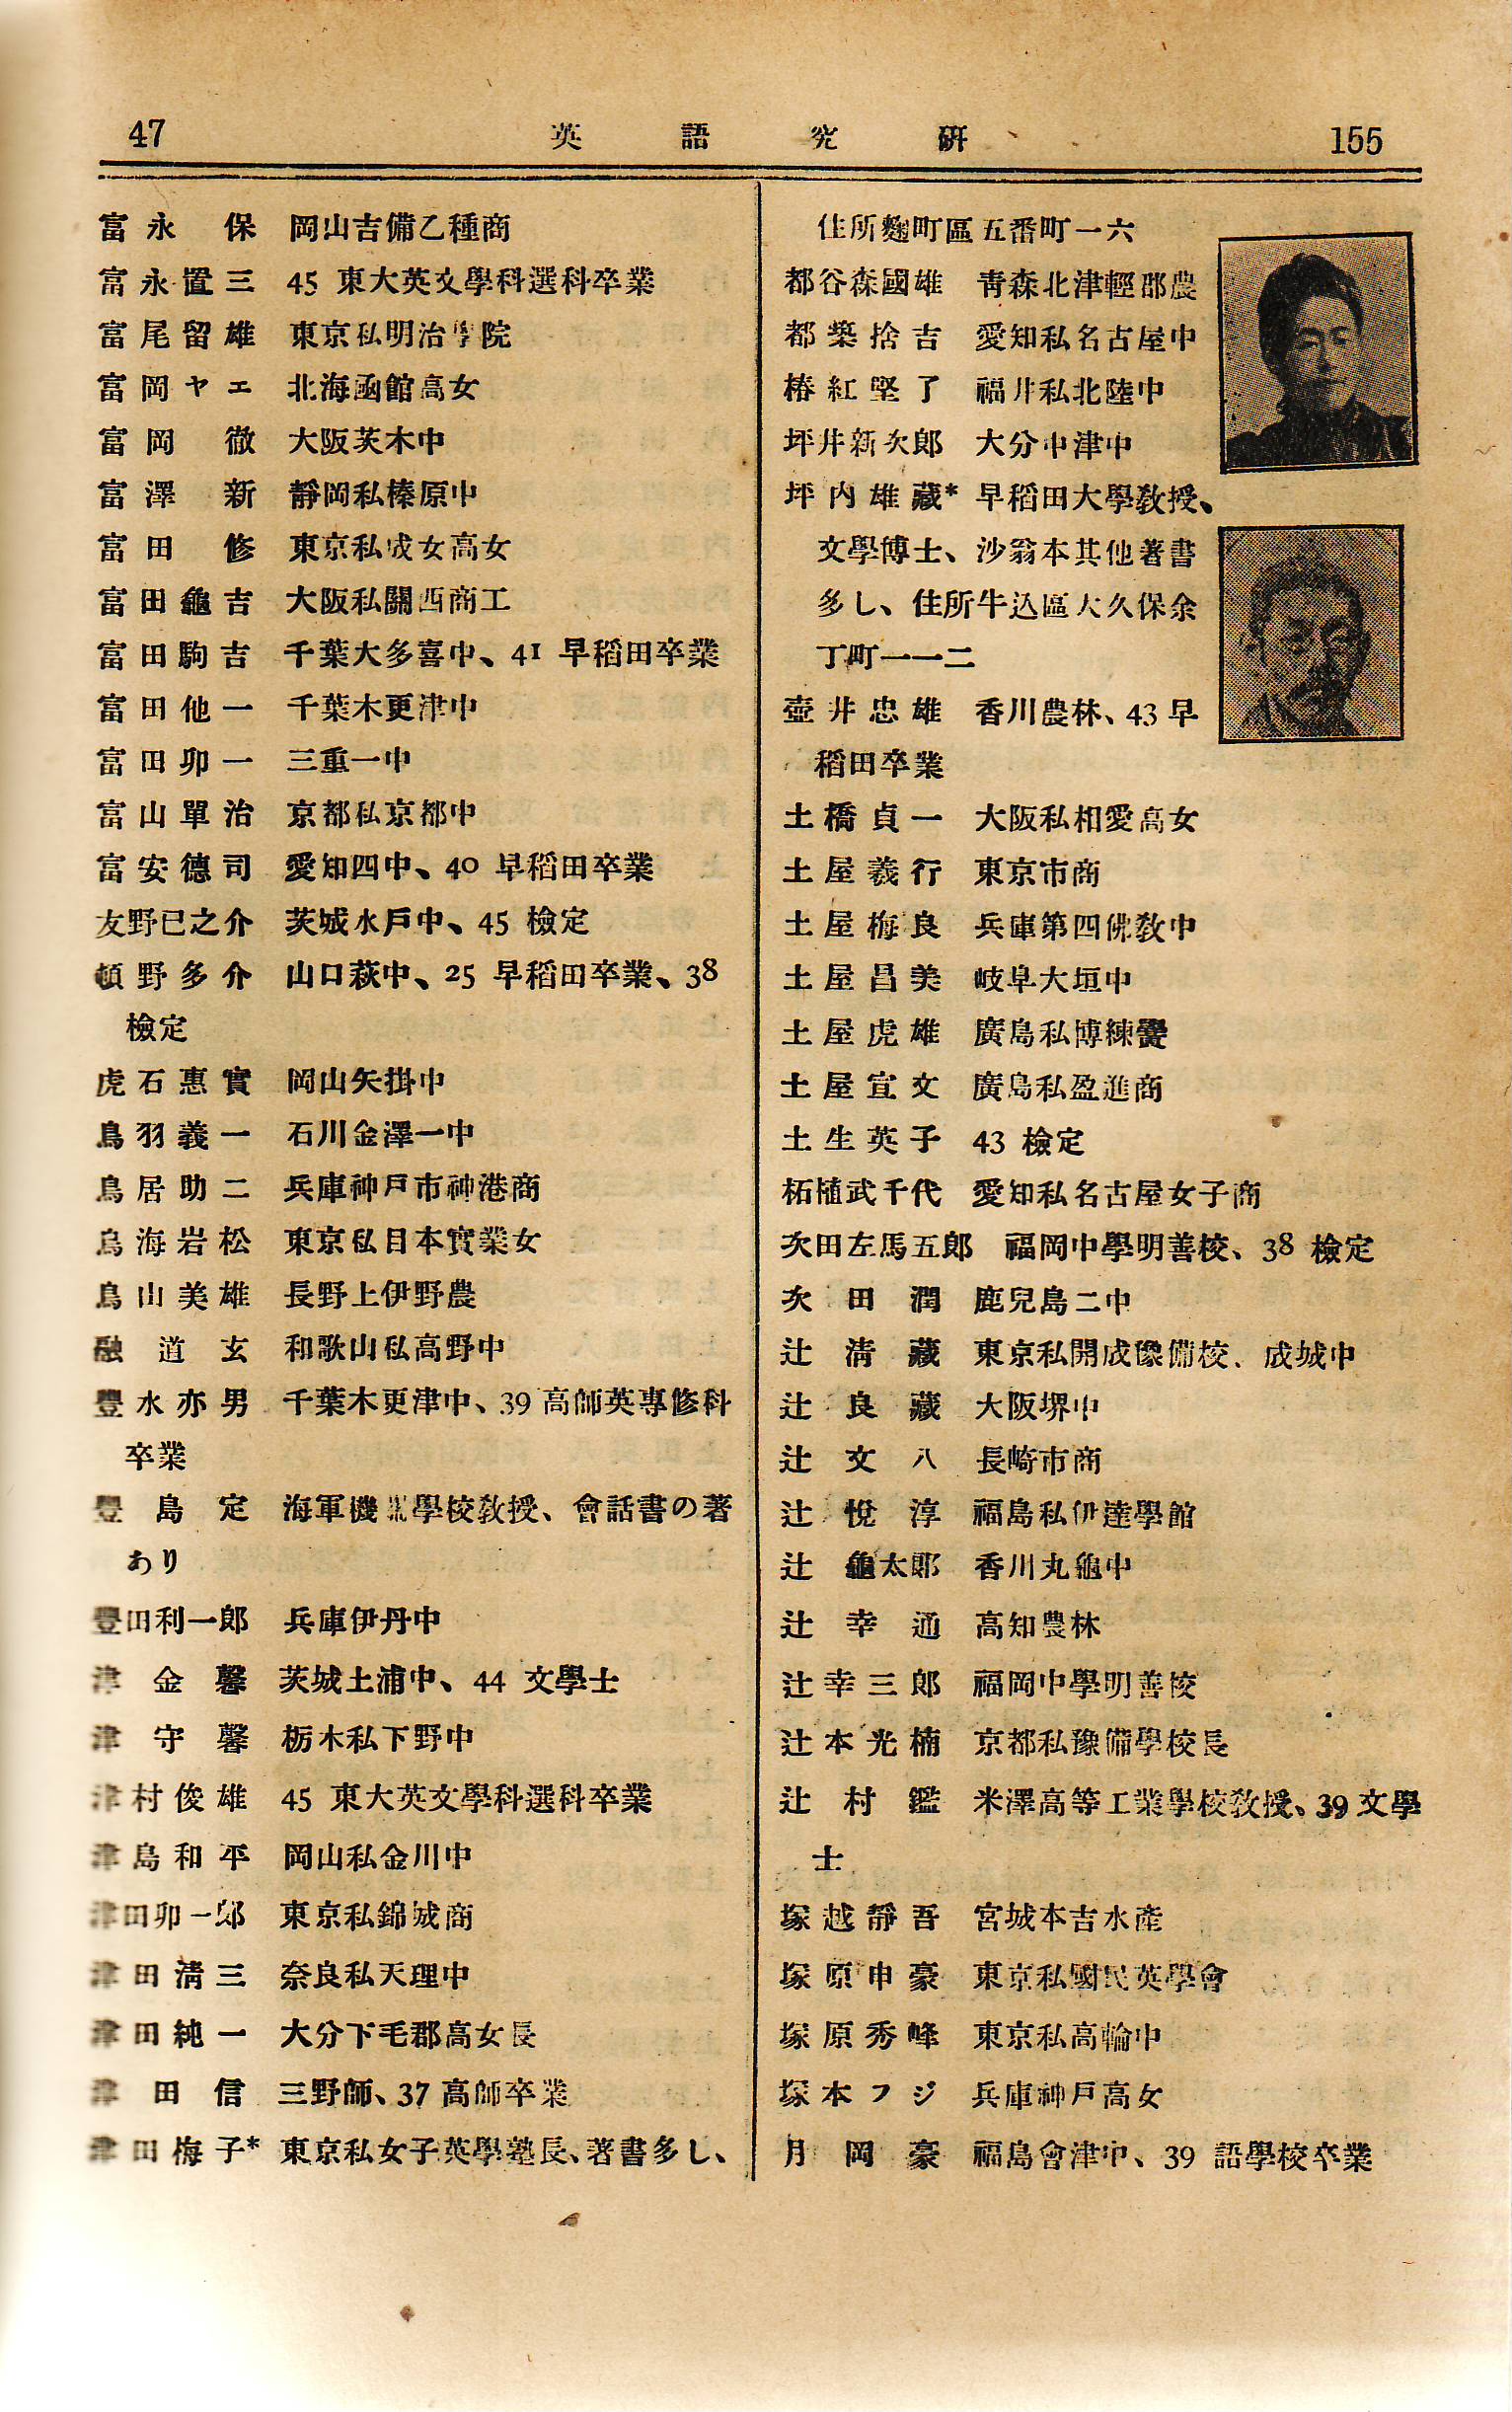 47 英語究研 155
富永保 岡山吉備乙種商
富永置三 45 東大英文學科選科卒業
富尾留雄 東京私明治學院
富岡ヤエ 北海函館高女
富岡徹 大阪茨木中
富澤新 靜岡私榛原中
富田修 東京私成女高女
富田龜吉 大阪私關西商工
富田駒吉 千葉大多喜中、41 早稻田卒業
富田他一 千葉木更津中
富田卯一 三重一中
富山單治 京都私京都中
富安德司 愛知四中、40 早稻田卒業
友野已之介 茨城水戶中、45 檢定
頓野多介 山口萩中、25 早稻田卒業、38
檢定
虎石惠實 岡山矢掛中
鳥羽義一 石川金澤一中
鳥居助二 兵庫神戶市神港商
鳥海岩松 東京私日本實業女
鳥山美雄 長野上伊野農
融道玄 和歌山私高野中
豐水亦男 千葉木更津中、39 高師英專修科
卒業
豐島定 海軍機關學校敎授、會話書の著
あり
豐田利一郎 兵庫伊丹中
津金馨 茨城土浦中、44 文學士
津守馨 栃木私下野中
津村俊雄 45 東大英文學科選科卒業
津島和平 岡山私金川中
津田卯一郎 東京私錦城商
津田淸三 奈良私天理中
津田純一 大分下毛郡高女長
津田信 三野師、37 高師卒業
津田梅子* 東京私女子英學塾長、著書多し、
住所麴町區五番町一六
都谷森國雄 靑森北津輕郡農
都築捨吉 愛知私名古屋中
椿紅堅了 福井私北陸中
坪井新次郎 大分中津中
坪內雄藏* 早稻田大學敎授、
文學博士、沙翁本其他著書
多し、住所牛込區大久保余
丁町一一二
壺井忠雄 香川農林、43 早
稻田卒業
土橋貞一 大阪私相愛高女
土屋義行 東京市商
土屋梅良 兵庫第四佛敎中
土屋昌美 岐阜大垣中
土屋虎雄 廣島私博練黌
土屋宣文 廣島私盈進商
土生英子 43 檢定
柘植武千代 愛知私名古屋女子商
次田左馬五郎 福岡中學明善校、38 檢定
次田潤 鹿兒島二中
辻淸藏 東京私開成豫備校、成城中
辻良藏 大阪堺中
辻文八 長崎市商
辻悅淳 福島私伊達學館
辻龜太郎 香川丸龜中
辻幸通 高知農林
辻幸三郎 福岡中學明善校
辻本光楠 京都私豫備學校長
辻村鑑 米澤高等工業學校敎授、39 文學
士
塚越靜吾 宮城本吉水產
塚原申豪 東京私國民英學會
塚原秀峰 東京私高輪中
塚本フジ 兵庫神戶高女
月岡豪 福島會津中、39 語學校卒業